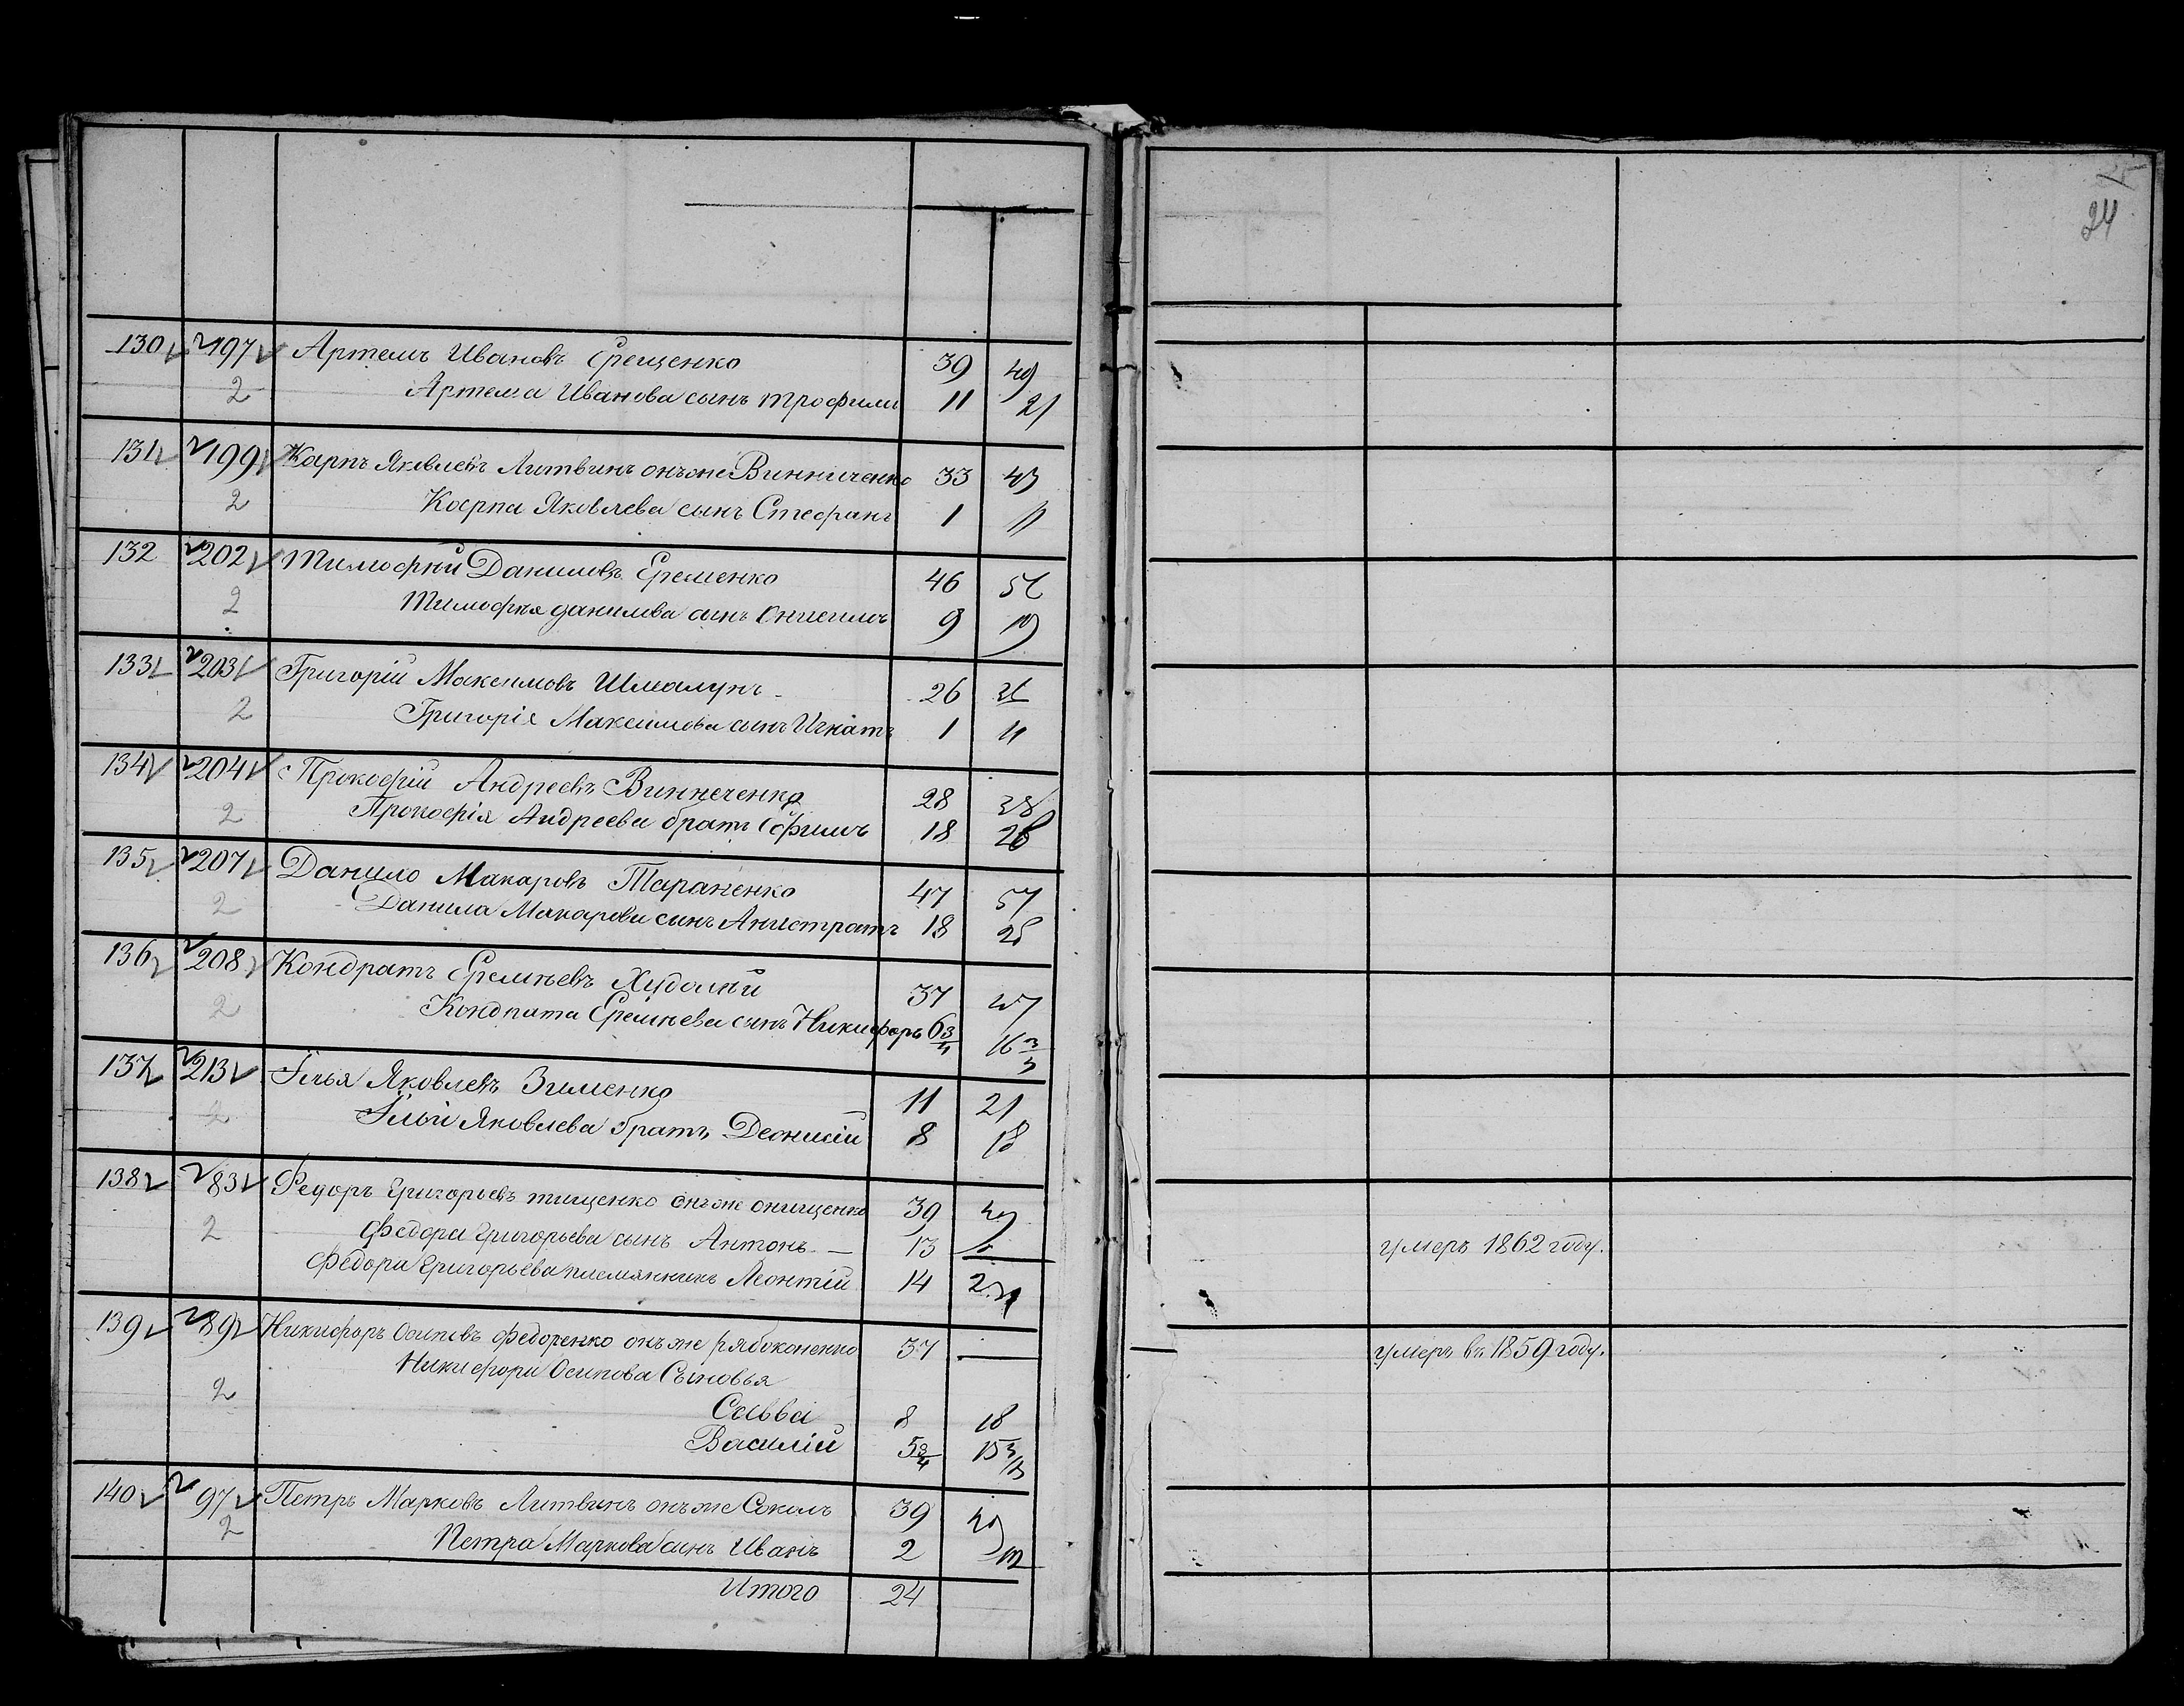 24
130 197 Артемъ Ивановъ Ерещенко 39 49
2 Артема Иванова сынъ Трофимъ 11 21
131 199 Карпъ Яковлевъ Литвинъ онъ же Винниченко 33 43
2 Карпа Яковлева сынъ Стефанъ 1 11
132 202 Тимофѣй Даниловъ Еременко 46 56
2 Тимофѣя Данилова сынъ Онисимъ 9 19
133 203 Григорій Максимовъ Шмалунъ 26 36
2 Григорія Максимова сынъ Игнатъ 1 11
134 204 Прокофій Андреевъ Винниченко 28 38
2 Прокофія Андреева братъ Ефимъ 18 28
135 207 Данило Макаровъ Тараненко 47 57
2 Данила Макарова сынъ Анистратъ 18 28
136 208 Кондратъ Еремѣевъ Худолѣй 37 47
2 Кондрата Еремѣева сынъ Никифоръ 6 3/4 16 3/4
137 213 Илья Яковлевъ Зименко 11 21
2 Ильи Яковлева братъ Деонисій 8 18
138 83 Федоръ Григорьевъ Тищенко онъ же Онищенко 39 49
2 Федора Григорьева сынъ Антонъ — 13 — умеръ 1862 году.
Федора Григорьева племянникъ Леонтій 14 24
139 89 Никифоръ Осиповъ Федоренко онъ же Рябоконенко 37 — умеръ въ 1859 году.
Никифора Осипова Сыновья
2 Савва 8 18
Василій 5 3/4 15 3/4
140 97 Петръ Марковъ Литвинъ онъ же Соколъ 39 49
2 Петра Маркова сынъ Иванъ 2 12
Итого 24